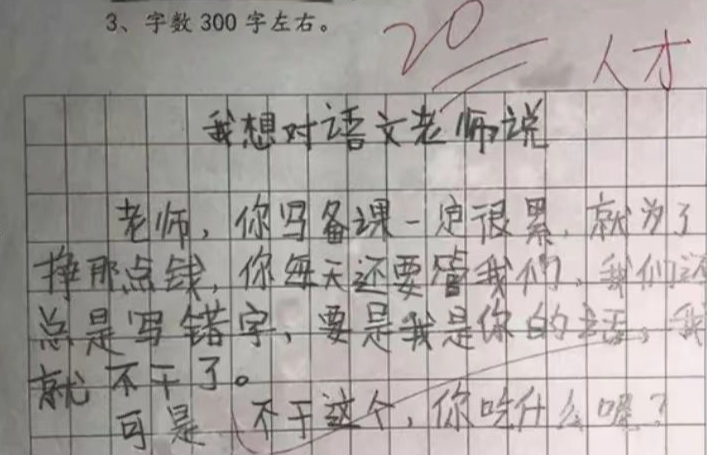 3、字数 300 字左右。
20 人才
我想对语文老师说
老师，你写备课一定很累，就为了
挣那点钱，你每天还要管我们，我们还
总是写错字，要是我是你的话，我
就不干了。
可是不干这个，你吃什么呢？